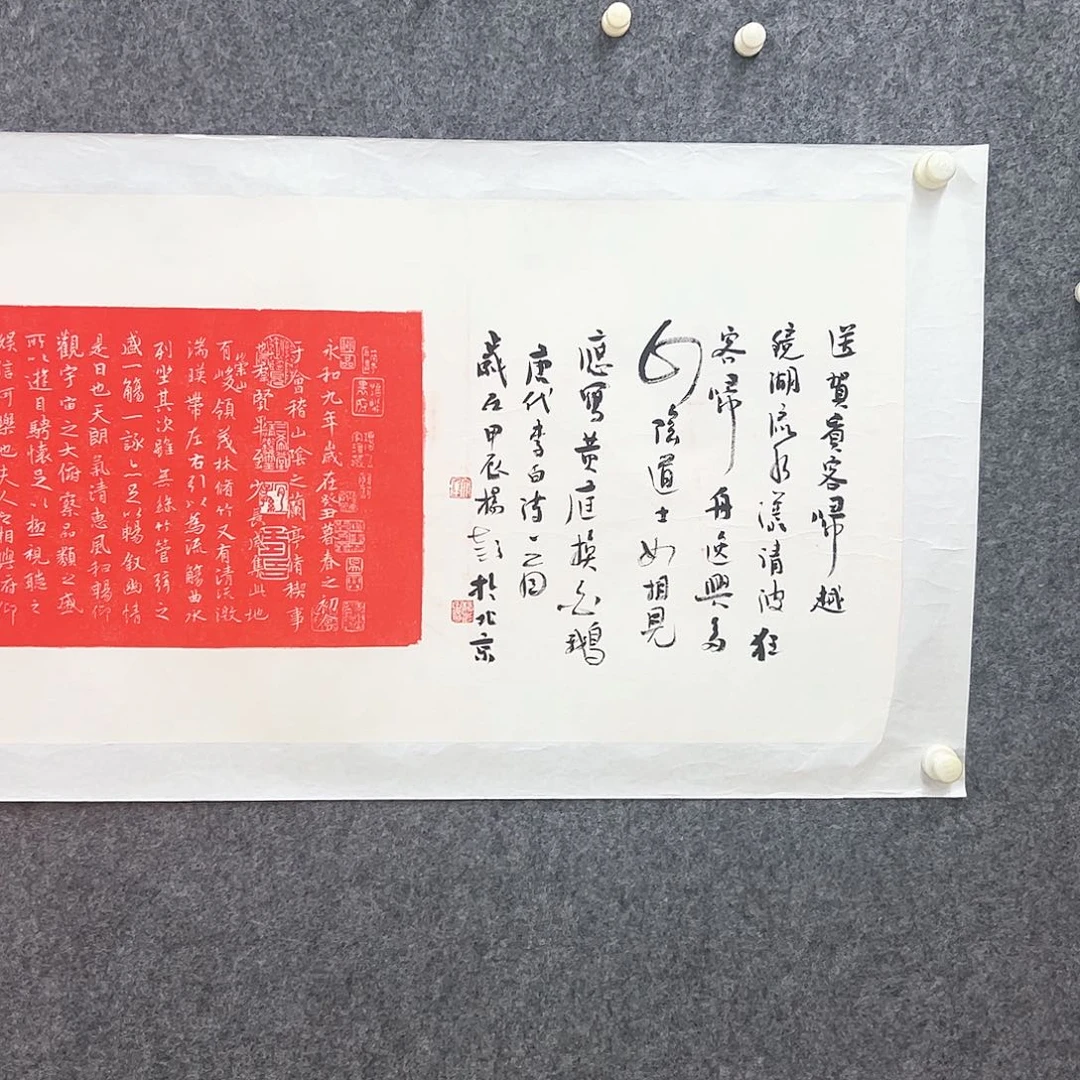 送賀賓客歸越
鏡湖流水漾清波狂
客歸舟逸興多
山陰道士如相見
應寫黃庭換白鵝
唐代李白诗一首
歲在甲辰楊彭於北京
永和九年歲在癸丑暮春之初
于會稽山陰之蘭亭脩稧事
群賢畢至少長咸集此地
有崇山峻領茂林脩竹又有清流激
湍暎帶左右引以為流觴曲水
列坐其次雖無絲竹管弦之
盛一觴一詠亦足以暢敘幽情
是日也天朗氣清惠風和暢仰
觀宇宙之大俯察品類之盛
所以遊目騁懷足以極視聽之
娛信可樂也夫人之相與俯仰